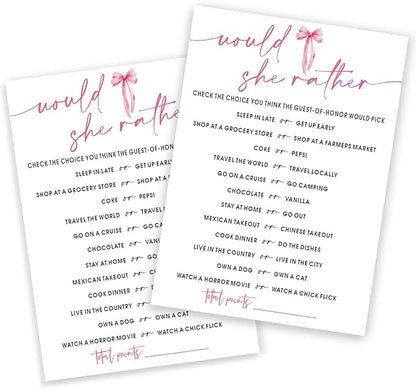 would
she rather
CHECK THE CHOICE YOU THINK THE GUEST-OF-HO
SLEEP IN LATE or GET UP EARLY
SHOP AT A GROCERY STORE or SHOP AT A
COKE or PEPSI
TRAVEL THE WORLD or TRAVEL
GO ON A CRUISE or GO CAMPING
CHOCOLATE or VANILLA
STAY AT HOME or GO OUT
MEXICAN TAKEOUT or
COOK DINNER or DO
LIVE IN THE COUNTRY or LIVE IN
OWN A DOG or OWN A CAT
WATCH A HORROR MOVIE or WATCH A CHICK FLICK
total points
would
she rather
CHECK THE CHOICE YOU THINK THE GUEST-OF-HONOR WOULD PICK
SLEEP IN LATE or GET UP EARLY
SHOP AT A GROCERY STORE or SHOP AT A FARMERS MARKET
COKE or PEPSI
TRAVEL THE WORLD or TRAVEL LOCALLY
GO ON A CRUISE or GO CAMPING
CHOCOLATE or VANILLA
STAY AT HOME or GO OUT
MEXICAN TAKEOUT or CHINESE TAKEOUT
COOK DINNER or DO THE DISHES
LIVE IN THE COUNTRY or LIVE IN THE CITY
OWN A DOG or OWN A CAT
WATCH A HORROR MOVIE or WATCH A CHICK FLICK
total points